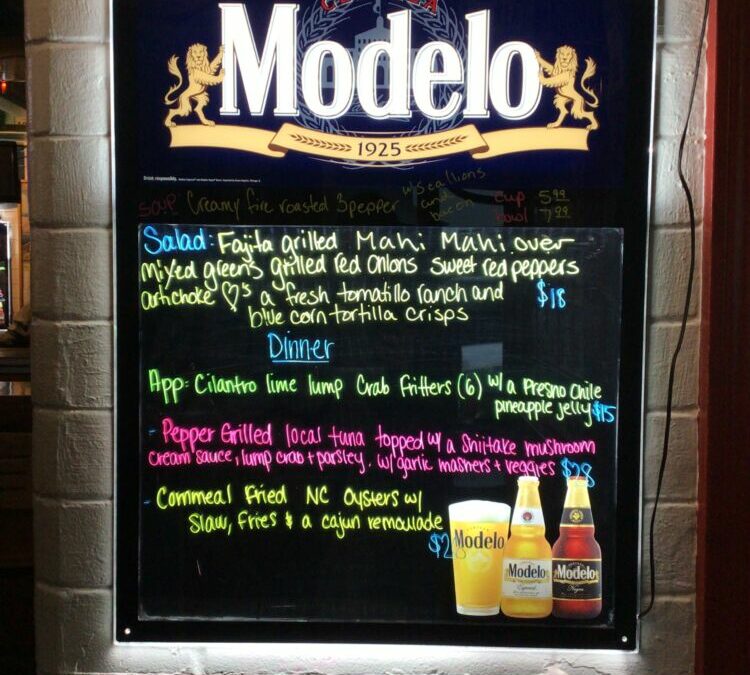 Modelo
1925
Drink responsibly.
w/scallions
and
bacon
Soup Creamy fire roasted 3 pepper cup 5.99
bowl 7.99
Salad: Fajita grilled Mahi Mahi over
mixed greens grilled red onions sweet red peppers
artichoke ♡'s a fresh tomatillo ranch and $18
blue corn tortilla crisps
Dinner
App: Cilantro lime lump Crab Fritters (6) w/ a Fresno Chile
pineapple jelly $15
- Pepper Grilled local tuna topped w/ a Shiitake mushroom
cream sauce, lump crab + parsley. w/ garlic mashers + veggies $28
- Cornmeal Fried NC Oysters w/
Slaw, Fries & a cajun remoulade
Modelo
Modelo
Especial
Modelo
Negra